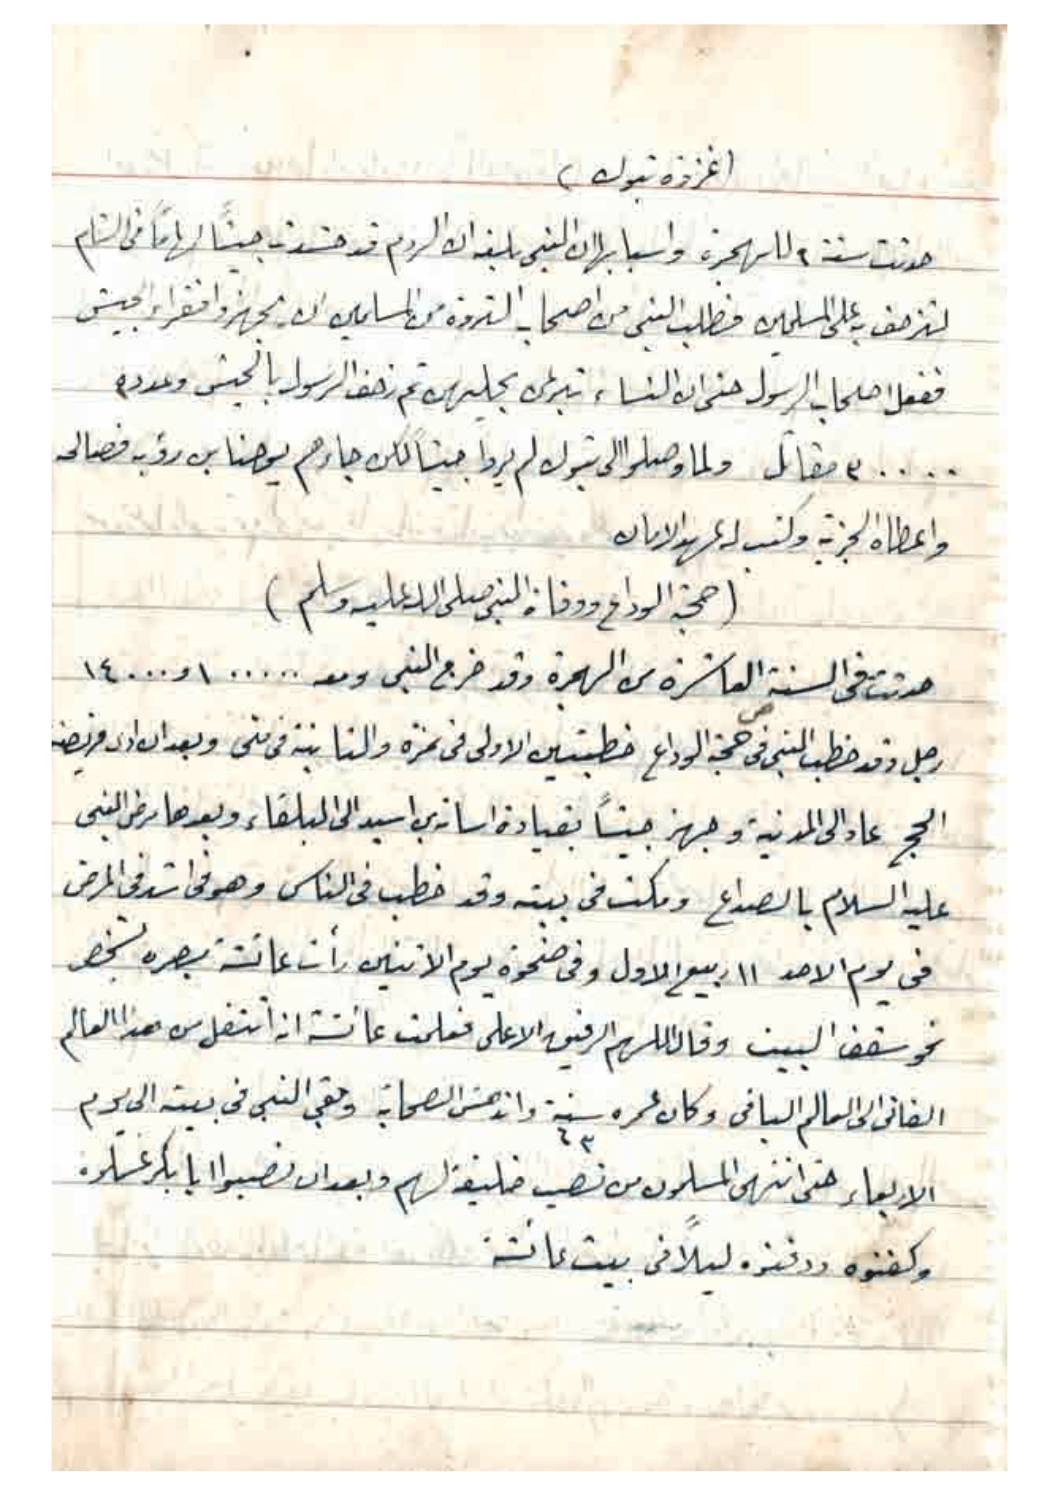 (غزوة تبوك)
حدثت سنة ٩ للهجرة واسبابها ان النبي بلغه ان الروم قد حشدت جيشاً لهاماً في الشام
لتزحف به على المسلمين فطلب النبي من اصحاب الثروة من المسلمين ان يجهزوا فقراء الجيش
ففعل اصحاب الرسول حتى ان النساء تبرعن بحليهن ثم زحف الرسول بالجيش وعدده
٣٠٠٠٠ مقاتل ولما وصلوا الى تبوك لم يروا جيشاً لكن جاءهم يوحنا بن رؤبه فصالحه
واعطاه الجزية وكتب له عهد الامان
(حجة الوداع ووفاة النبي صلى الله عليه وسلم)
حدثت في السنة العاشرة من الهجرة وقد خرج النبي ومعه ١٠٠٠٠٠ و ١٤٠٠٠
رجل وقد خطب النبي ص في حجة الوداع خطبتين الاولى في نمرة والثانية في منى وبعد ان ادى فريضة
الحج عاد الى المدينة وجهز جيشاً بقيادة اسامة بن اسيد الى البلقاء وبعدها مرض النبي
عليه السلام بالصداع ومكث في بيته وقد خطب في الناس وهو في اشد في المرض
في يوم الاحد ١١ ربيع الاول وفي ضحوة يوم الاثنين رأت عائشة بصره شخص
نحو سقف البيت وقال اللهم الرفيق الاعلى فعلمت عائشة انه انتقل من هذا العالم
الفاني الى العالم الباقي وكان عمره ٦٣ سنة واندهش الصحابة وبقي النبي في بيته الى يوم
الاربعاء حتى انتهى المسلمون من نصب خليفة لهم وبعد ان نصبوا ابا بكر غسلوه
وكفنوه ودفنوه ليلاً في بيت عائشة